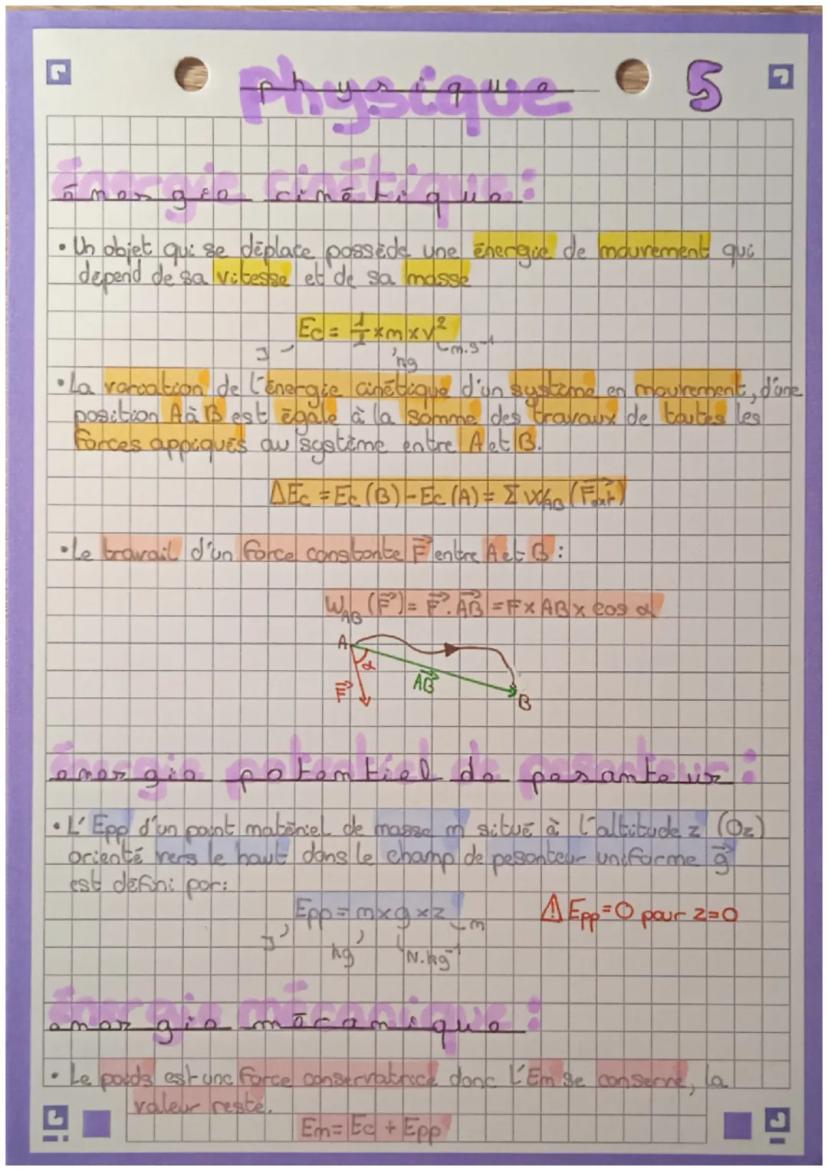 physique 5
énergie cinétique :
• Un objet qui se déplace possède une énergie de mouvement qui
dépend de sa vitesse et de sa masse
Ec = 1/2 × m × v²
J kg m.s⁻¹
• La varoation de l'énergie cinétique d'un système en mouvement, d'une
position A à B est égale à la somme des travaux de toutes les
forces appiqués au système entre A et B.
ΔEc = Ec (B) - Ec (A) = Σ W_AB (F⃗ext)
• Le travail d'un force constante F⃗ entre A et B :
W_AB (F⃗) = F⃗ . AB⃗ = F × AB × cos α
A
α
F⃗ AB⃗
B
énergie potentiel de pesanteur :
• L'Epp d'un point matériel de masse m situé à l'altitude z (Oz)
orienté vers le haut dans le champ de pesanteur uniforme g⃗
est défini par :
Epp = m × g × z ⚠ Epp = 0 pour z = 0
J kg N.kg⁻¹ m
énergie mécanique :
• Le poids est une force conservatrice donc l'Em se conserve, la
valeur reste.
Em = Ec + Epp